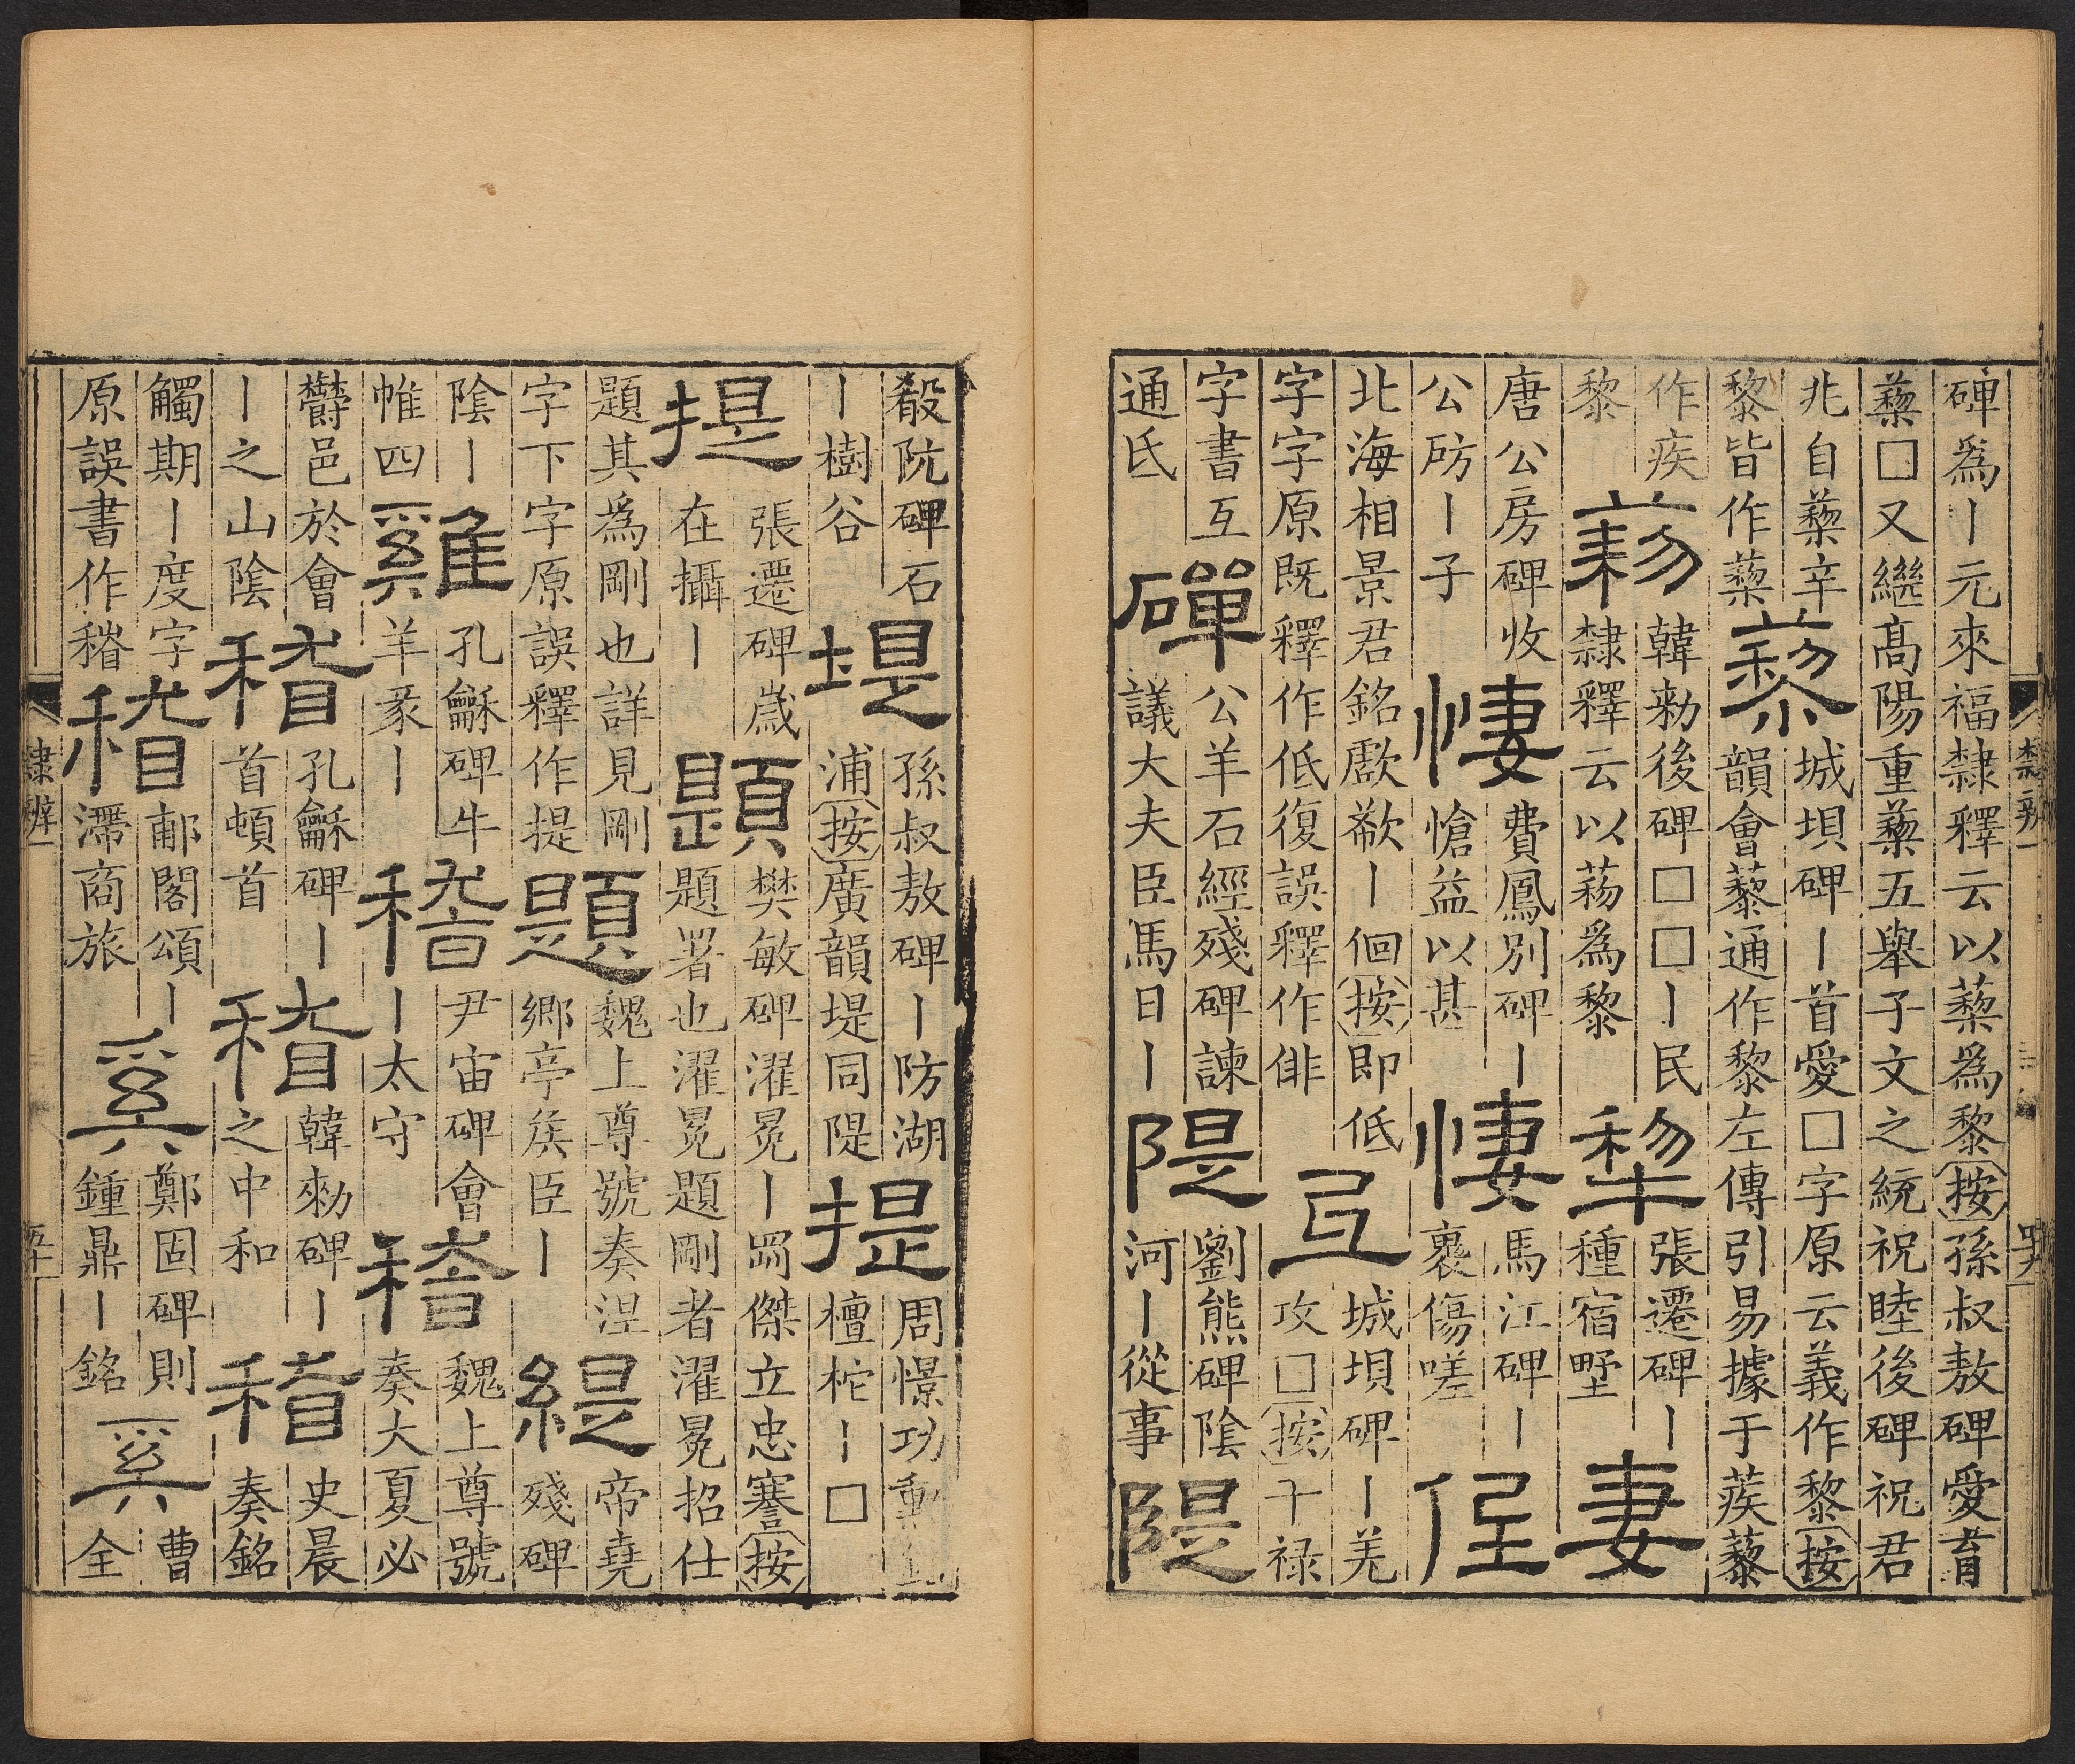 碑爲丨元來福隸釋云以蔾爲黎按孫叔敖碑愛育
蔾□又繼髙陽重蔾五舉子文之統祝睦後碑祝君
兆自蔾辛
黎皆作蔾
藜
城垻碑丨首愛□字原云義作黎按
韻會藜通作黎左傳引易據于蒺藜
作疾
黎
䔧
韓勑後碑□□丨民
隸釋云以䔧爲黎
犂
張遷碑丨
種宿墅
妻
唐公房碑收
公昉丨子
悽
費鳳別碑丨
愴益以甚
悽
馬江碑丨
裹傷嗟
低
北海相景君銘歔欷丨佪按即低
字字原既釋作低復誤釋作俳
氐
城垻碑丨羌
攻□按干禄
字書互
通氐
磾
公羊石經殘碑諫
議大夫臣馬日丨
隄
劉熊碑陰
河丨從事
隄
殽阬碑石
丨樹谷
堤
孫叔敖碑丨防湖
浦按廣韻堤同隄
提
周憬功勳
檀柁丨□
提
張遷碑歲
在攝丨
題
樊敏碑濯冕丨罔傑立忠謇按
題署也濯冕題剛者濯冕招仕
題其爲剛也詳見剛
字下字原誤釋作提
題
魏上尊號奏涅
鄉亭矦臣丨
緹
帝堯
殘碑
陰丨
帷四
雞
孔龢碑牛
羊豕丨
稽
尹宙碑會
丨太守
稽
魏上尊號
奏大夏必
欝邑於會
丨之山陰
稽
孔龢碑丨
首頓首
稽
韓勑碑丨
之中和
稽
史晨
奏銘
觸期丨度字
原誤書作稽
稽
郙閣頌丨
滯商旅
奚
鄭固碑則
鍾鼎丨銘
奚
曹
全
隸辨一